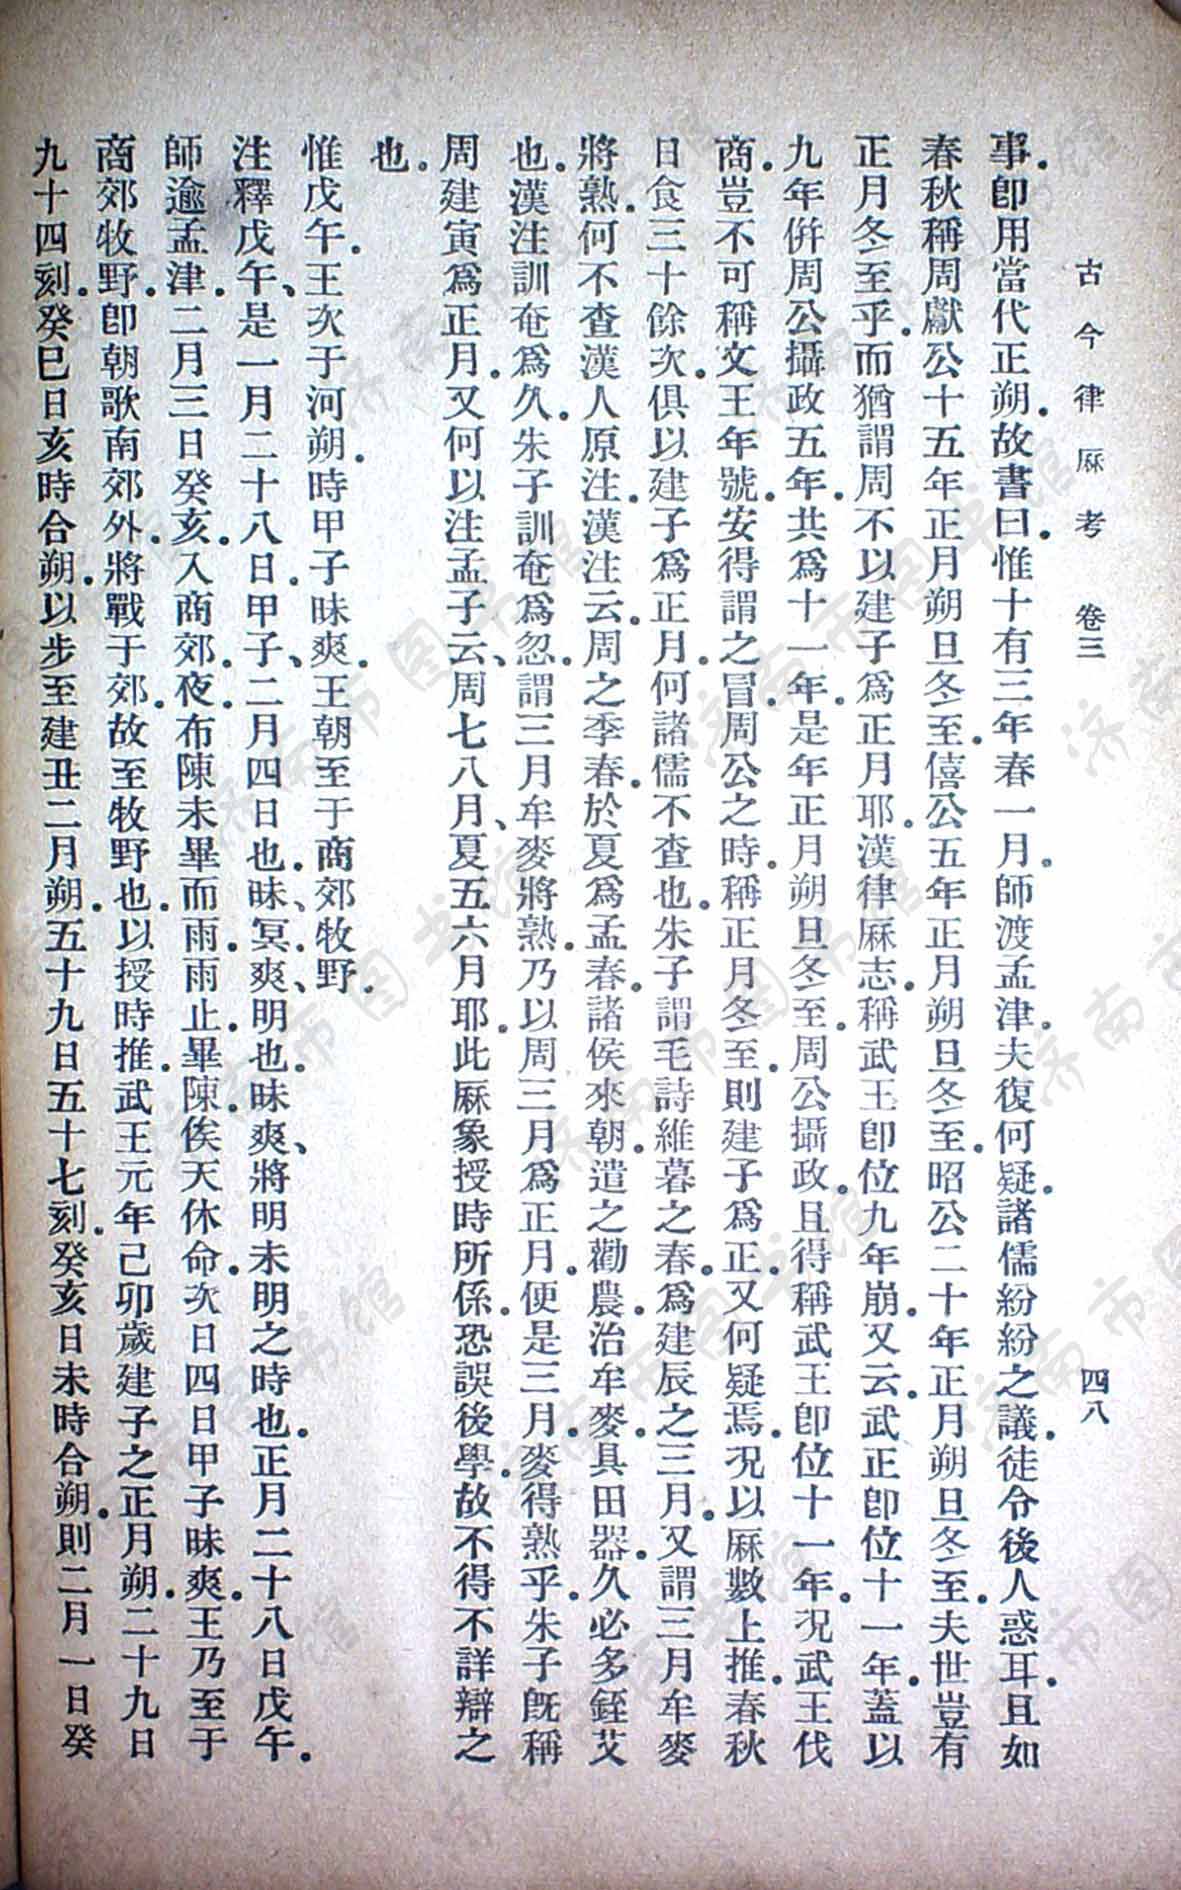 古今律厤考　卷三　四八
事。卽用當代正朔。故書曰。惟十有三年春一月。師渡孟津。夫復何疑。諸儒紛紛之議。徒令後人惑耳。且如
春秋稱周獻公十五年正月朔旦冬至。僖公五年正月朔旦冬至。昭公二十年正月朔旦冬至。夫世豈有
正月冬至乎。而猶謂周不以建子爲正月耶。漢律厤志。稱武王卽位九年崩。又云。武正卽位十一年。蓋以
九年倂周公攝政五年。共爲十一年。是年正月朔旦冬至。周公攝政。且得稱武王卽位十一年。況武王伐
商。豈不可稱文王年號。安得謂之冒周公之時。稱正月冬至。則建子爲正。又何疑焉。況以厤數上推。春秋
日食三十餘次。俱以建子爲正月。何諸儒不查也。朱子謂毛詩維暮之春。爲建辰之三月。又謂三月牟麥
將熟。何不查漢人原注。漢注云。周之季春。於夏爲孟春。諸侯來朝。遣之勸農。治牟麥。具田器。久必多銍艾
也。漢注訓奄爲久。朱子訓奄爲忽。謂三月牟麥將熟。乃以周三月爲正月。便是三月。麥得熟乎。朱子旣稱
周建寅爲正月。又何以注孟子云、周七八月、夏五六月耶。此厤象授時所係。恐誤後學。故不得不詳辯之
也。
惟戊午。王次于河朔。時甲子昧爽。王朝至于商郊牧野。
注釋戊午、是一月二十八日。甲子、二月四日也。昧、冥。爽、明也。昧爽、將明未明之時也。正月二十八日戊午。
師逾孟津。二月三日癸亥。入商郊。夜。布陳未畢而雨。雨止。畢陳。俟天休命。次日四日甲子昧爽。王乃至于
商郊牧野。卽朝歌南郊外。將戰于郊。故至牧野也。以授時推。武王元年己卯歲建子之正月朔。二十九日
九十四刻。癸巳日亥時合朔。以步至建丑二月朔。五十九日五十七刻。癸亥日未時合朔。則二月一日癸